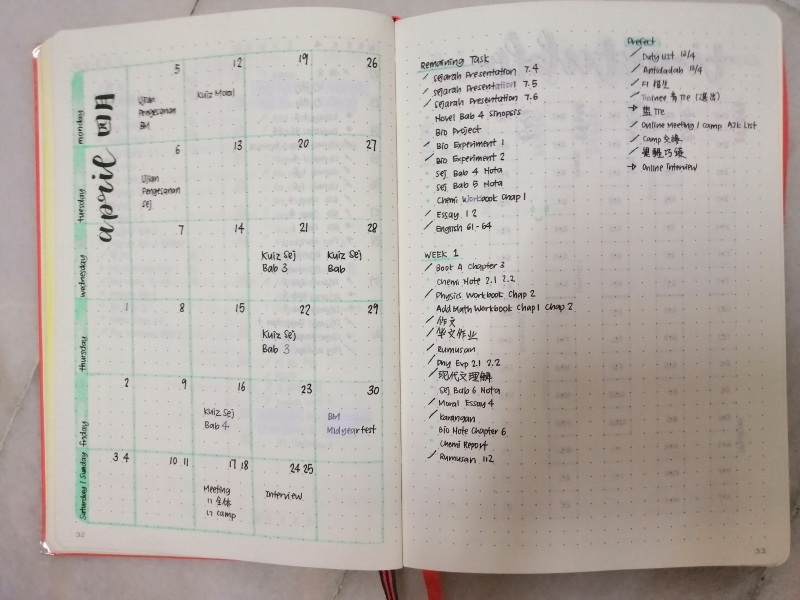 april 四月
monday
5
Ujian
Pengesanan
BM
12
Kuiz Moral
19
26
tuesday
6
Ujian
Pengesanan
Sej
13
20
27
wednesday
7
14
21
Kuiz Sej
Bab 3
28
Kuiz Sej
Bab
thursday
1
8
15
22
Kuiz Sej
Bab 3
29
friday
2
9
16
Kuiz Sej
Bab 4
23
30
BM
Midyear test
Saturday / Sunday
3 4
10 11
17 18
Meeting
camp
24 25
Interview
32
Remaining Task
Sejarah Presentation 7.4
Sejarah Presentation 7.5
Sejarah Presentation 7.6
Novel Bab 4 Sinopsis
Bio Project
Bio Experiment 1
Bio Experiment 2
Sej Bab 4 Nota
Sej Bab 5 Nota
Chemi Workbook Chap 1
Essay 1 2
English 61-64
WEEK 1
Book A Chapter 3
Chemi Note 2.1 2.2
Physics Workbook Chap 2
Add Math Workbook Chap 1 Chap 2
作文
华文作业
Rumusan
Phy Exp 2.1 2.2
现代文理解
Sej Bab 6 Nota
Moral Essay 4
Karangan
Bio Note Chapter 6
Chemi Report
Rumusan 112
Prefect
Duty List 12/4
Online Meeting / Camp AJK List
Camp
Online Interview
33